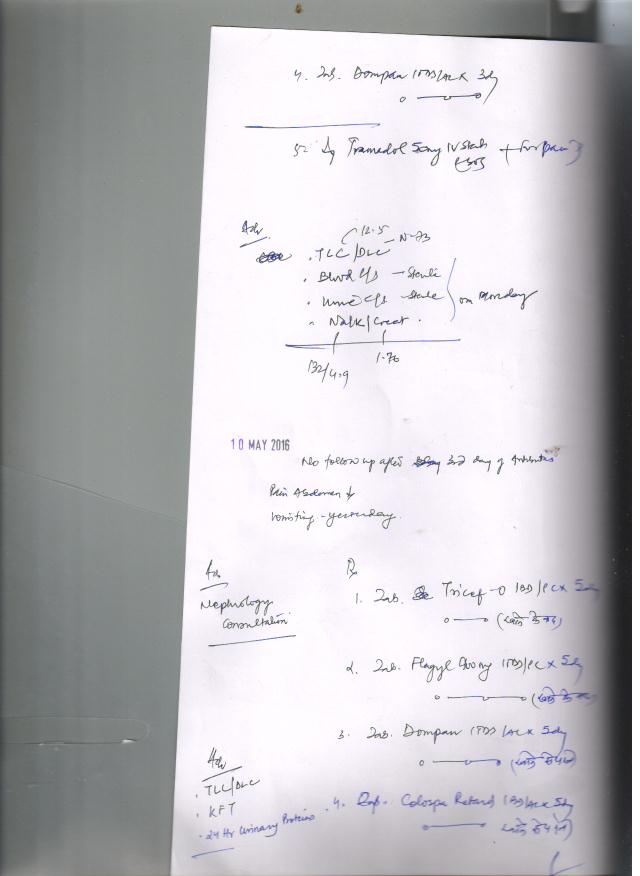 4. Tab. Dompan 1TDS/AC x 3dy
5. Inj Tramadol 50mg IV Stat
Adv
12.5
N-73
. TLC/DLC
. Blood C/s - Sterile
. Urine C/s - Sterile
on Monday
Na/K/Creat.
132/4.9
1.70
10 MAY 2016
No follow up after 3rd day of Antibiotics
Pain Abdomen ↓
Vomiting - yesterday.
Adv
Nephrology
Consultation
Rx
1. Tab. Tricef-O 1BD/PC x 5dy
2. Tab. Flagyl 400mg 1TDS/PC x 5dy
3. Tab. Dompan 1TDS/AC x 5dy
Adv
. TLC/DLC
. KFT
. 24 Hr Urinary Proteins
4. Cap. Colospa Retard 1BD/AC x 5dy